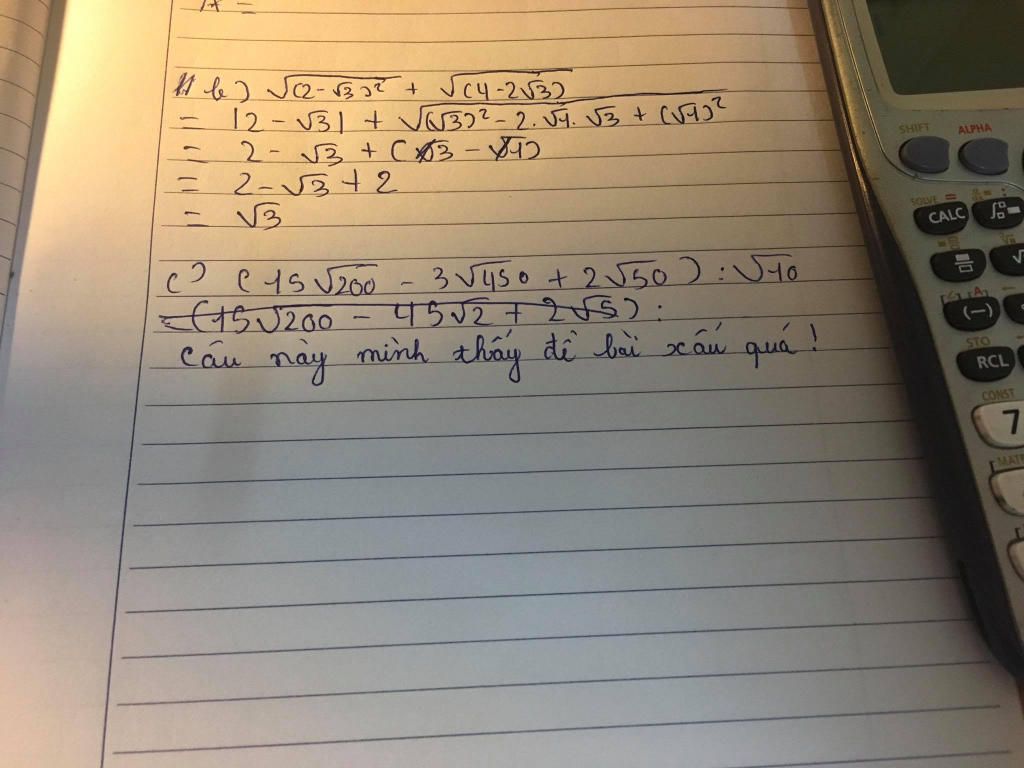 A =
b) √(2-√3)² + √(4-2√3)
= |2 - √3| + √(√3)² - 2.√1.√3 + (√1)²
= 2 - √3 + (√3 - √1)
= 2-√3 + 2
= √3
c) (15√200 - 3√450 + 2√50) : √10
= (15√200 - 45√2 + 2√5) :
Câu này mình thấy đề bài xấu quá !
SHIFT ALPHA
SOLVE =
CALC
(−)
STO
RCL
CONST
7
MATR